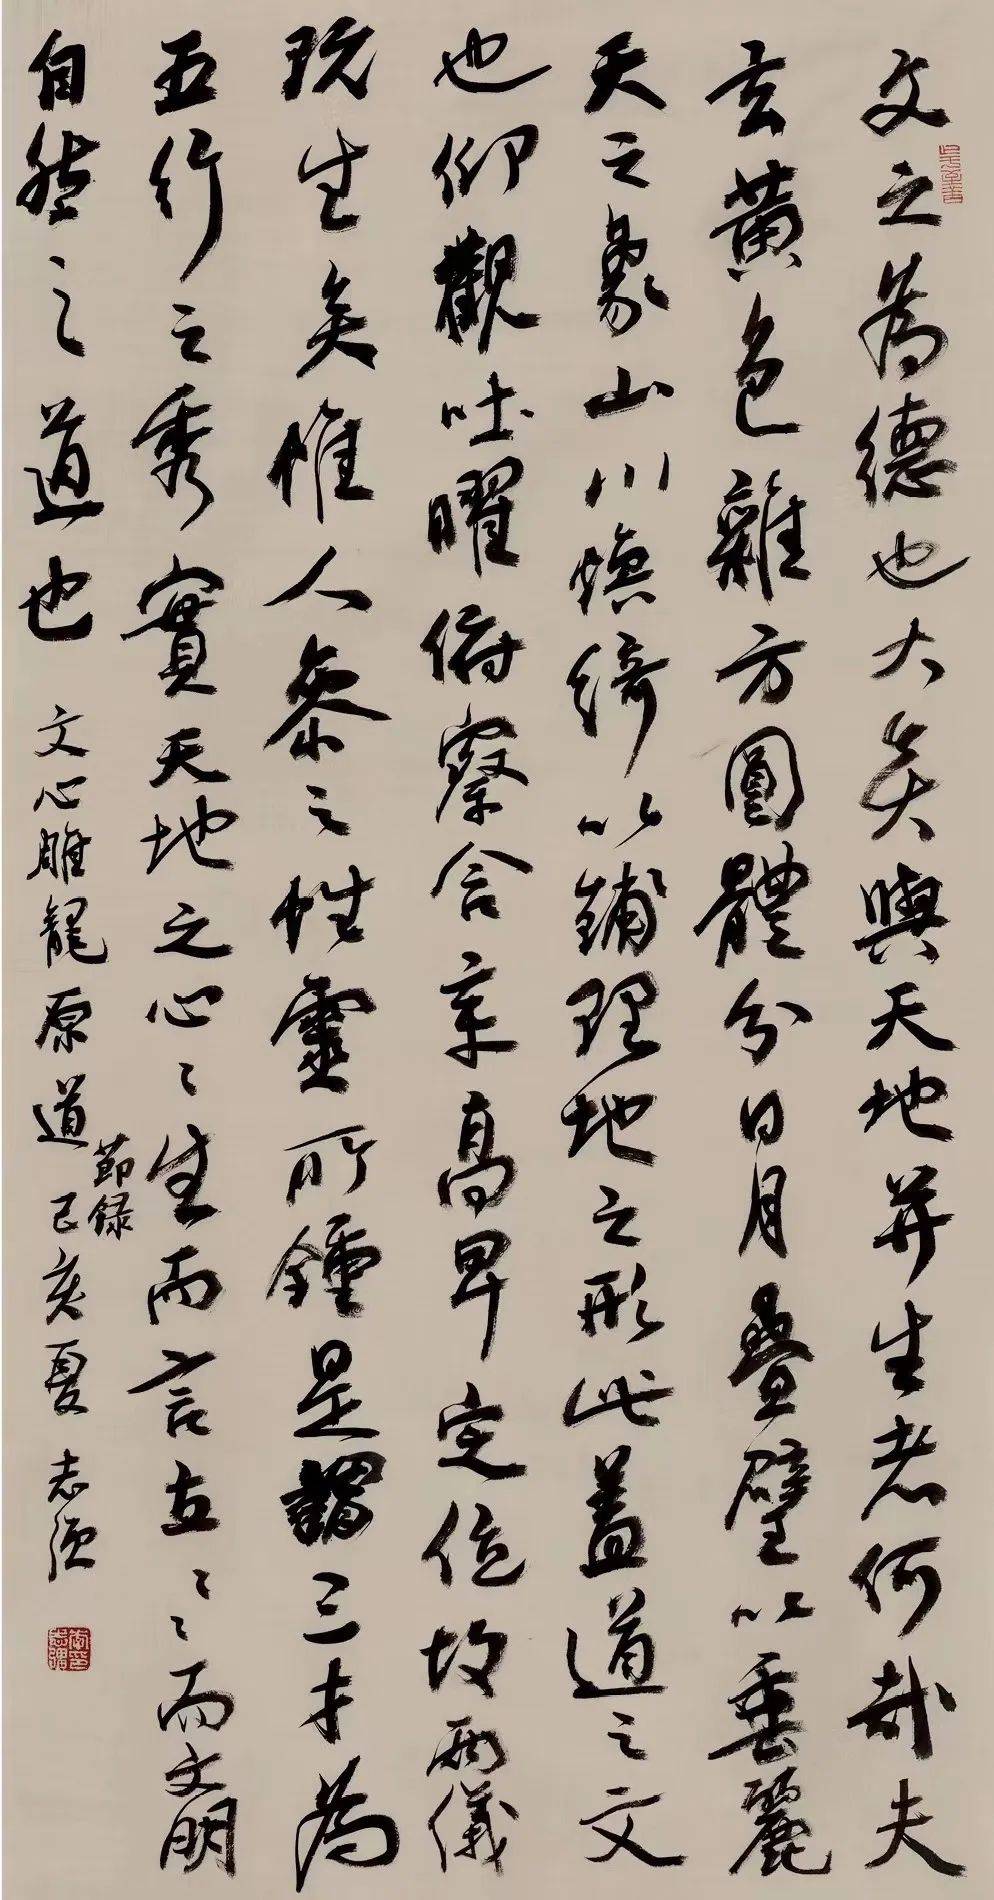 文之為德也大矣與天地并生者何哉夫
玄黃色雜方圓體分日月疊璧以垂麗
天之象山川煥綺以鋪理地之形此蓋道之文
也仰觀吐曜俯察含章高卑定位故兩儀
既生矣惟人參之性靈所鍾是謂三才為
五行之秀實天地之心心生而言立言立而文明
自然之道也
文心雕龍原道
節錄
己亥夏 志强